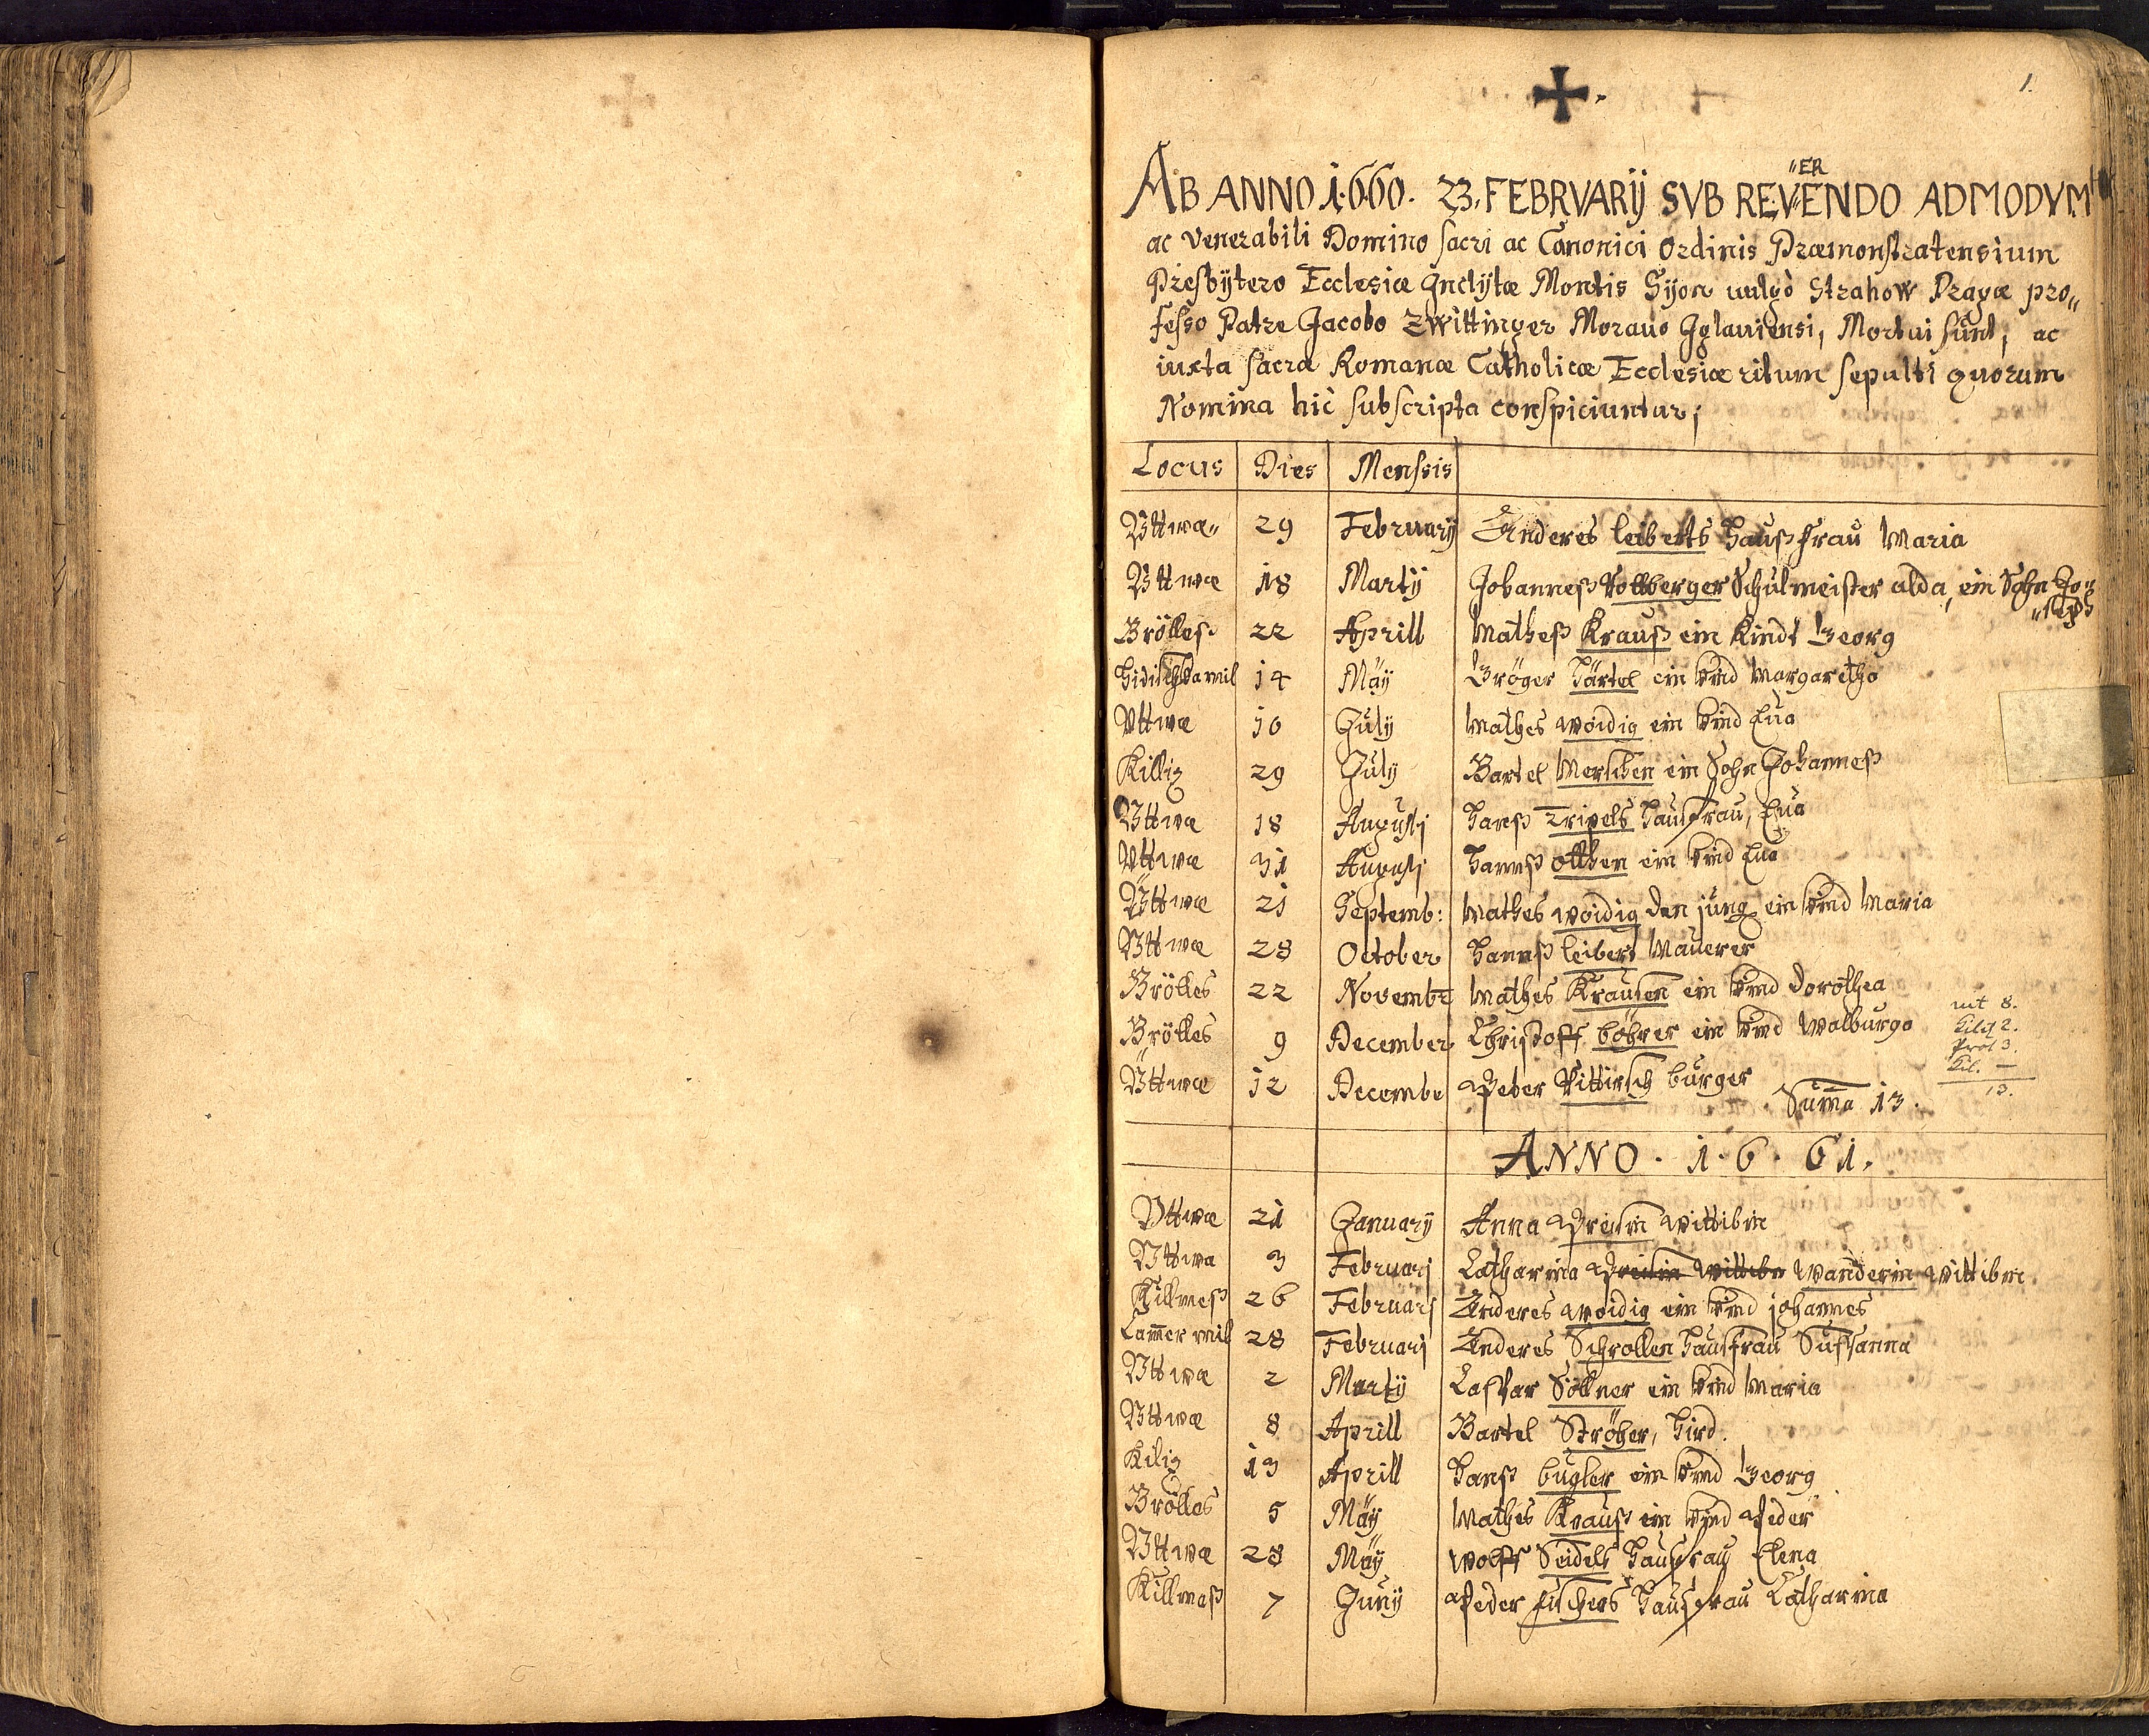 1.
AB ANNO 1660. 23. FEBRVARIJ SVB REVERENDO ADMODVM
ac Venerabili Domino sacri ac Canonici Ordinis Præmonstratensium
Presbytero Ecclesiæ Inclytæ Montis Syon vulgò Strahow Pragæ pro„
fesso Patre Jacobo Zwittinger Morauo Iglauiensi, Mortui sunt, ac
iuxta sacræ Romanæ Catholicæ Ecclesiæ ritum sepulti quorum
Nomina hic subscripta conspiciuntur;
Locus Dies Menssis
Vttwæ 29 February Anderes leiberts Haußfrau Maria
Vttwæ 18 Martÿ Johanneß Schulmeister alda, ein Sohn Jo„
„seph
Brölleß 22 Aprill Matheß Krauß ein Kindt Georg
14 Mäÿ Gröger Härtel ein Kind Margaretha
Vttwæ 10 July Mathes woidig ein Kind Eua
Killiz 29 July Bartel Merschen ein Sohn Johanneß
Vttwæ 18 Augusti Hanß Tripels Hausfrau, Eua
Vttwæ 31 Augusti Hannß otthen ein Kind Eua
Vttwæ 21 Septemb: Mathes woidig den jung ein Kind Maria
Vttwæ 28 October Hannß leibert Mauerer
Brölles 22 Novembr Mathes Krausen ein Kind Dorothea
Brölles 9 December Christoff böhrer ein Kind Walburga
Vttwæ 12 Decembe Peder Vittirsch burger
Suma 13.
utt 8.
Kiliz 2.
Pröl 3.
Kil. —
13.
ANNO . 1 . 6 . 61.
Vttwæ 21 Januarÿ Anna Preisin wittibin
Vttwa 3 Februarj Catharina Preisin wittibn Wanderin wittibin
Killmeß 26 Februarj Anderes woidig ein Kind johannes
Lamer mil 28 Februarj Anderes Schrollen Hausfrau Sussanna
Vttwæ 2 Martÿ Caspar Söllner ein Kind Maria
Vttwæ 8 Aprill Bartel Ströher, Hird.
Kiliz 13 Aprill Hanß bugler ein Kind Georg
Brölles 5 Mäÿ Mathes Krauß ein Kind Peder
Vttwæ 28 Mäÿ Wolff Seidels Haußfrau Elena
Killmaß 7 Junÿ Peder fischers Hausfrau Catharina